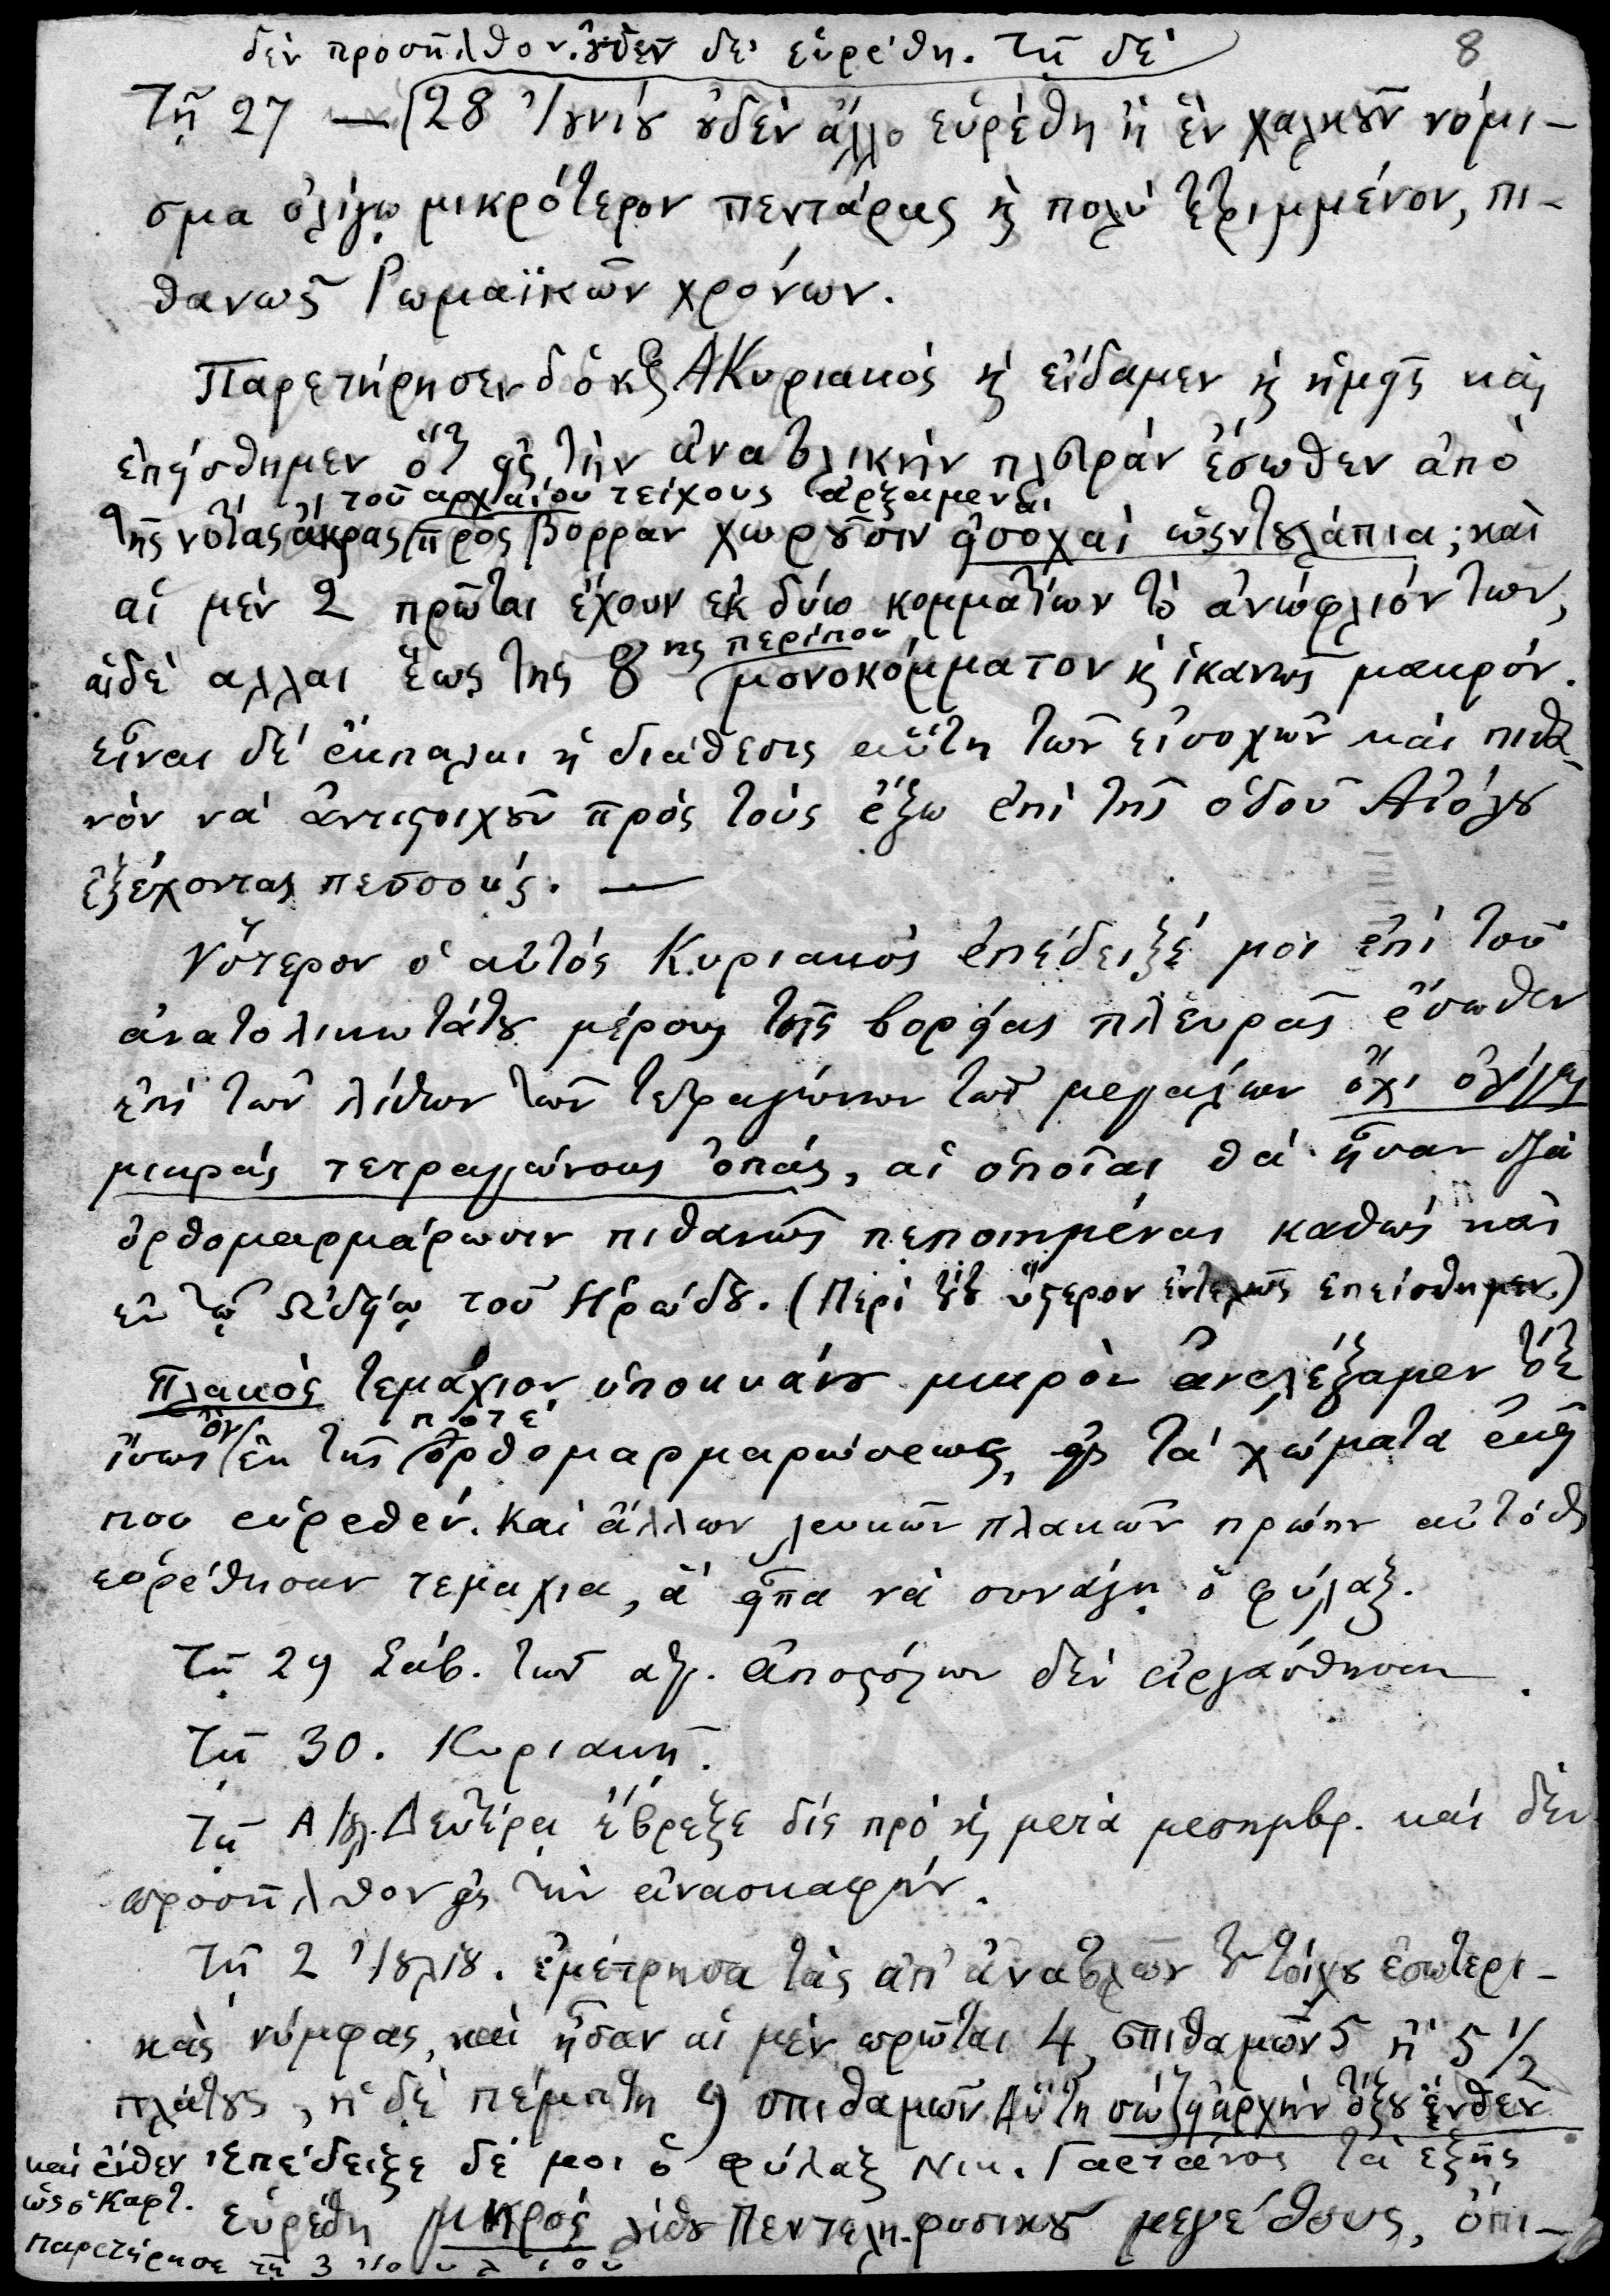 8
δὲν προσῆλθον. οὐδὲν δὲ εὑρέθη. τῇ δὲ
Τῇ 27 — 28 Ἰουνίου οὐδὲν ἄλλο εὑρέθη ἢ ἓν χαλκοῦν νόμι-
σμα ὀλίγῳ μικρότερον πεντάρας κ̀ πολὺ τετριμμένον, πι-
θανῶς Ῥωμαϊκῶν χρόνων.
Παρετήρησεν ὁ κς Α Κυριακὸς κ̀ εἴδαμεν κ̀ ἡμεῖς καὶ
ἐπείσθημεν ὅτι εἰς τὴν ἀνατολικὴν πλευρὰν ἔσωθεν ἀπὸ
τοῦ αρχαίου τείχους ἀρξάμεναι
τῆς νοτίας ἄκρας πρὸς βορρᾶν χωροῦσιν εἰσοχαὶ ὡς ντουλάπια; καὶ
αἱ μὲν 2 πρῶται ἔχουν ἐκ δύω κομματίων τὸ ἀνώφλιόν των,
αἱ δὲ αλλαι ἕως τῆς 8ης περίπου μονοκόμματον κ̀ ἱκανῶς μακρόν.
εἶναι δὲ ἔκπαλαι ἡ διάθεσις αὕτη τῶν εἰσοχῶν καὶ πιθα-
νὸν νὰ ἀντιστοιχοῦν πρὸς τοὺς ἔξω ἐπὶ τῆς ὁδοῦ Αἰόλου
ἐξέχοντας πεσσούς. —
Ὕστερον ὁ αὐτὸς Κυριακὸς ἐπέδειξέ μοι ἐπὶ τοῦ
ἀνατολικωτάτου μέρους τῆς βορείας πλευρᾶς ἔσωθεν
ἐπὶ τῶν λίθων τῶν τετραγώνων τῶν μεγάλων ὄχι ὀλίγας
μικρὰς τετραγώνους ὀπάς, αἱ ὁποῖαι θὰ ἦσαν διὰ
ὀρθομαρμάρωσιν πιθανῶς πεποιημέναι καθὼς καὶ
ἐν τῷ Ωδείῳ τοῦ Ἡρώδου. (Περὶ τούτου ὕστερον ἐντελῶς ἐπείσθημεν.)
Πλακὸς τεμάχιον ὑποκυάνου μικρὸν ἀνελέξαμεν
ἴσως ὂν ἐκ τῆς ποτὲ ὀρθομαρμαρώσεως, εἰς τὰ χώματα ἐκεῖ
που εὑρεθέν. Καὶ ἄλλων λευκῶν πλακῶν πρώην αὐτόθι
εὑρέθησαν τεμαχια, ἃ εἶπα νὰ συνάγῃ ὁ φύλαξ.
Τῇ 29 Σάβ. τῶν αγ. ἀποστόλων δὲν εἰργάσθησαν.
Τῇ 30. Κυριακῇ.
Τῇ Α Ἰουλ. Δευτέρᾳ ἔβρεξε δὶς πρὸ κ̀ μετὰ μεσημβρ. καὶ δὲν
προσῆλθον εἰς τὴν ἀνασκαφήν.
Τῇ 2 Ἰουλίου. ἐμέτρησα τὰς ἀπ' ἀνατολῶν τοῦ τοίχου ἐσωτερι-
κὰς νύμφας, καὶ ἦσαν αἱ μὲν πρῶται 4, σπιθαμῶν 5 ἢ 5 1/2
πλάτους, ἡ δὲ πέμπτη 9 σπιθαμῶν. Αὕτη σώζει ἀρχὴν τόξου ἔνθεν
καὶ ἔνθεν ὡς ὁ Καρτ. παρετήρησε τῇ 3 Ἰουλίου
Ἐπέδειξε δέ μοι ὁ φύλαξ Νικ. Γαετάνος τὰ ἑξῆς
Εὑρέθη μικρὸς λίθου Πεντελη. φυσικοῦ μεγέθους, ὀπι-